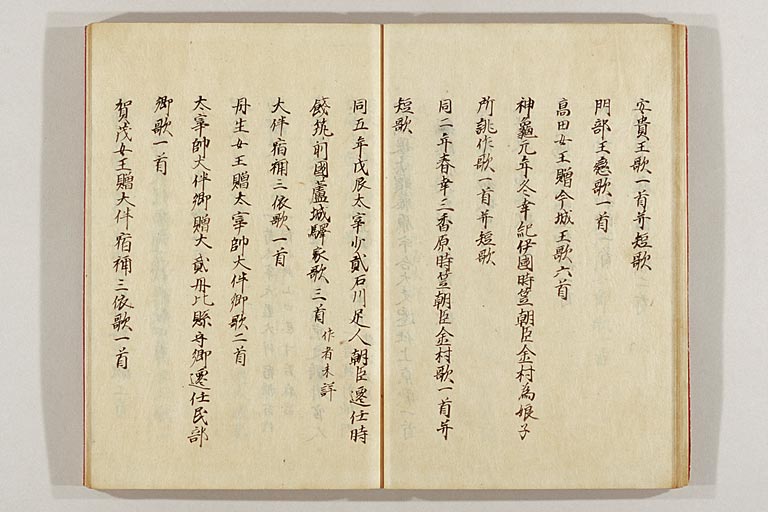 安貴王歌一首并短歌
門部王戀歌一首
高田女王贈今城王歌六首
神龜元年冬幸紀伊國時笠朝臣金村為娘子
所誂作歌一首并短歌
同二年春幸三香原時笠朝臣金村歌一首并
短歌
同五年戊辰太宰少貳石川足人朝臣遷任時
餞筑前國蘆城驛家歌三首 作者未詳
大伴宿祢三依歌一首
丹生女王贈太宰帥大伴卿歌二首
太宰帥大伴卿贈大貳丹比縣守卿遷任民部
卿歌一首
賀茂女王贈大伴宿祢三依歌一首